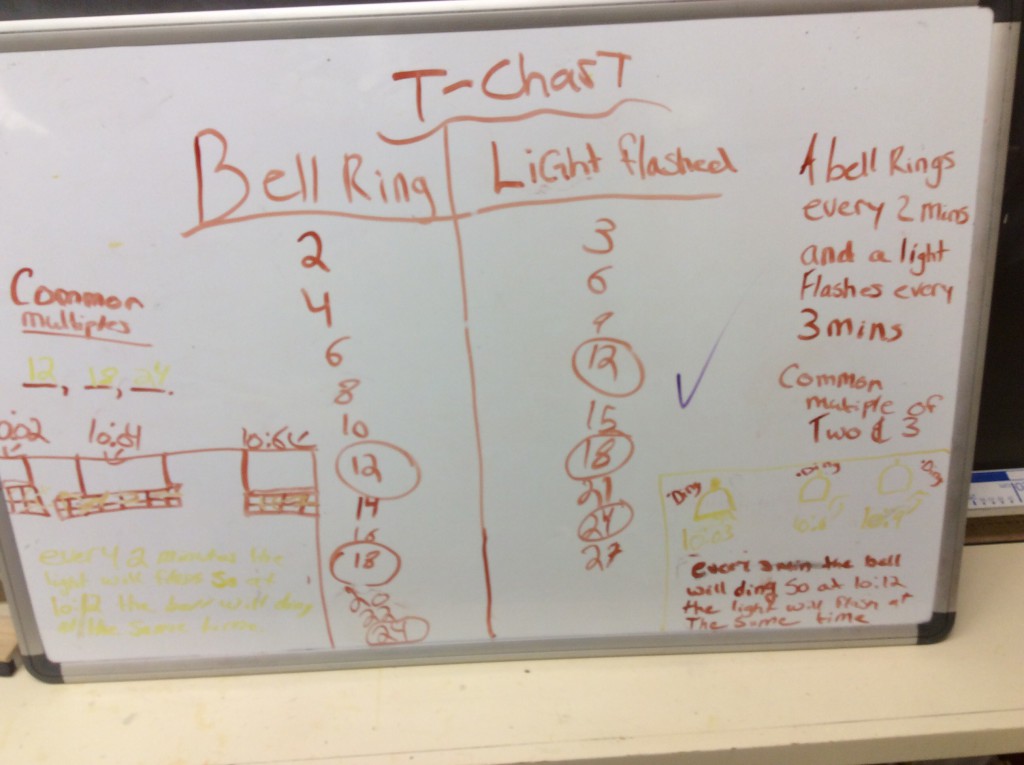 T-Chart
Bell Ring
Light flashed
2
4
6
8
10
12
14
16
18
20
24
3
6
9
12
15
18
21
24
27
A bell Rings
every 2 mins
and a light
Flashes every
3 mins
Common
multiple of
Two & 3
Common
multiples
12, 18, 24.
"Ding
"Ding
10:03
every 2 minutes the
light will so at
10:12 the will ding
at the same
every 3 min the bell
will ding So at 10:12
the light will flash at
The Same time